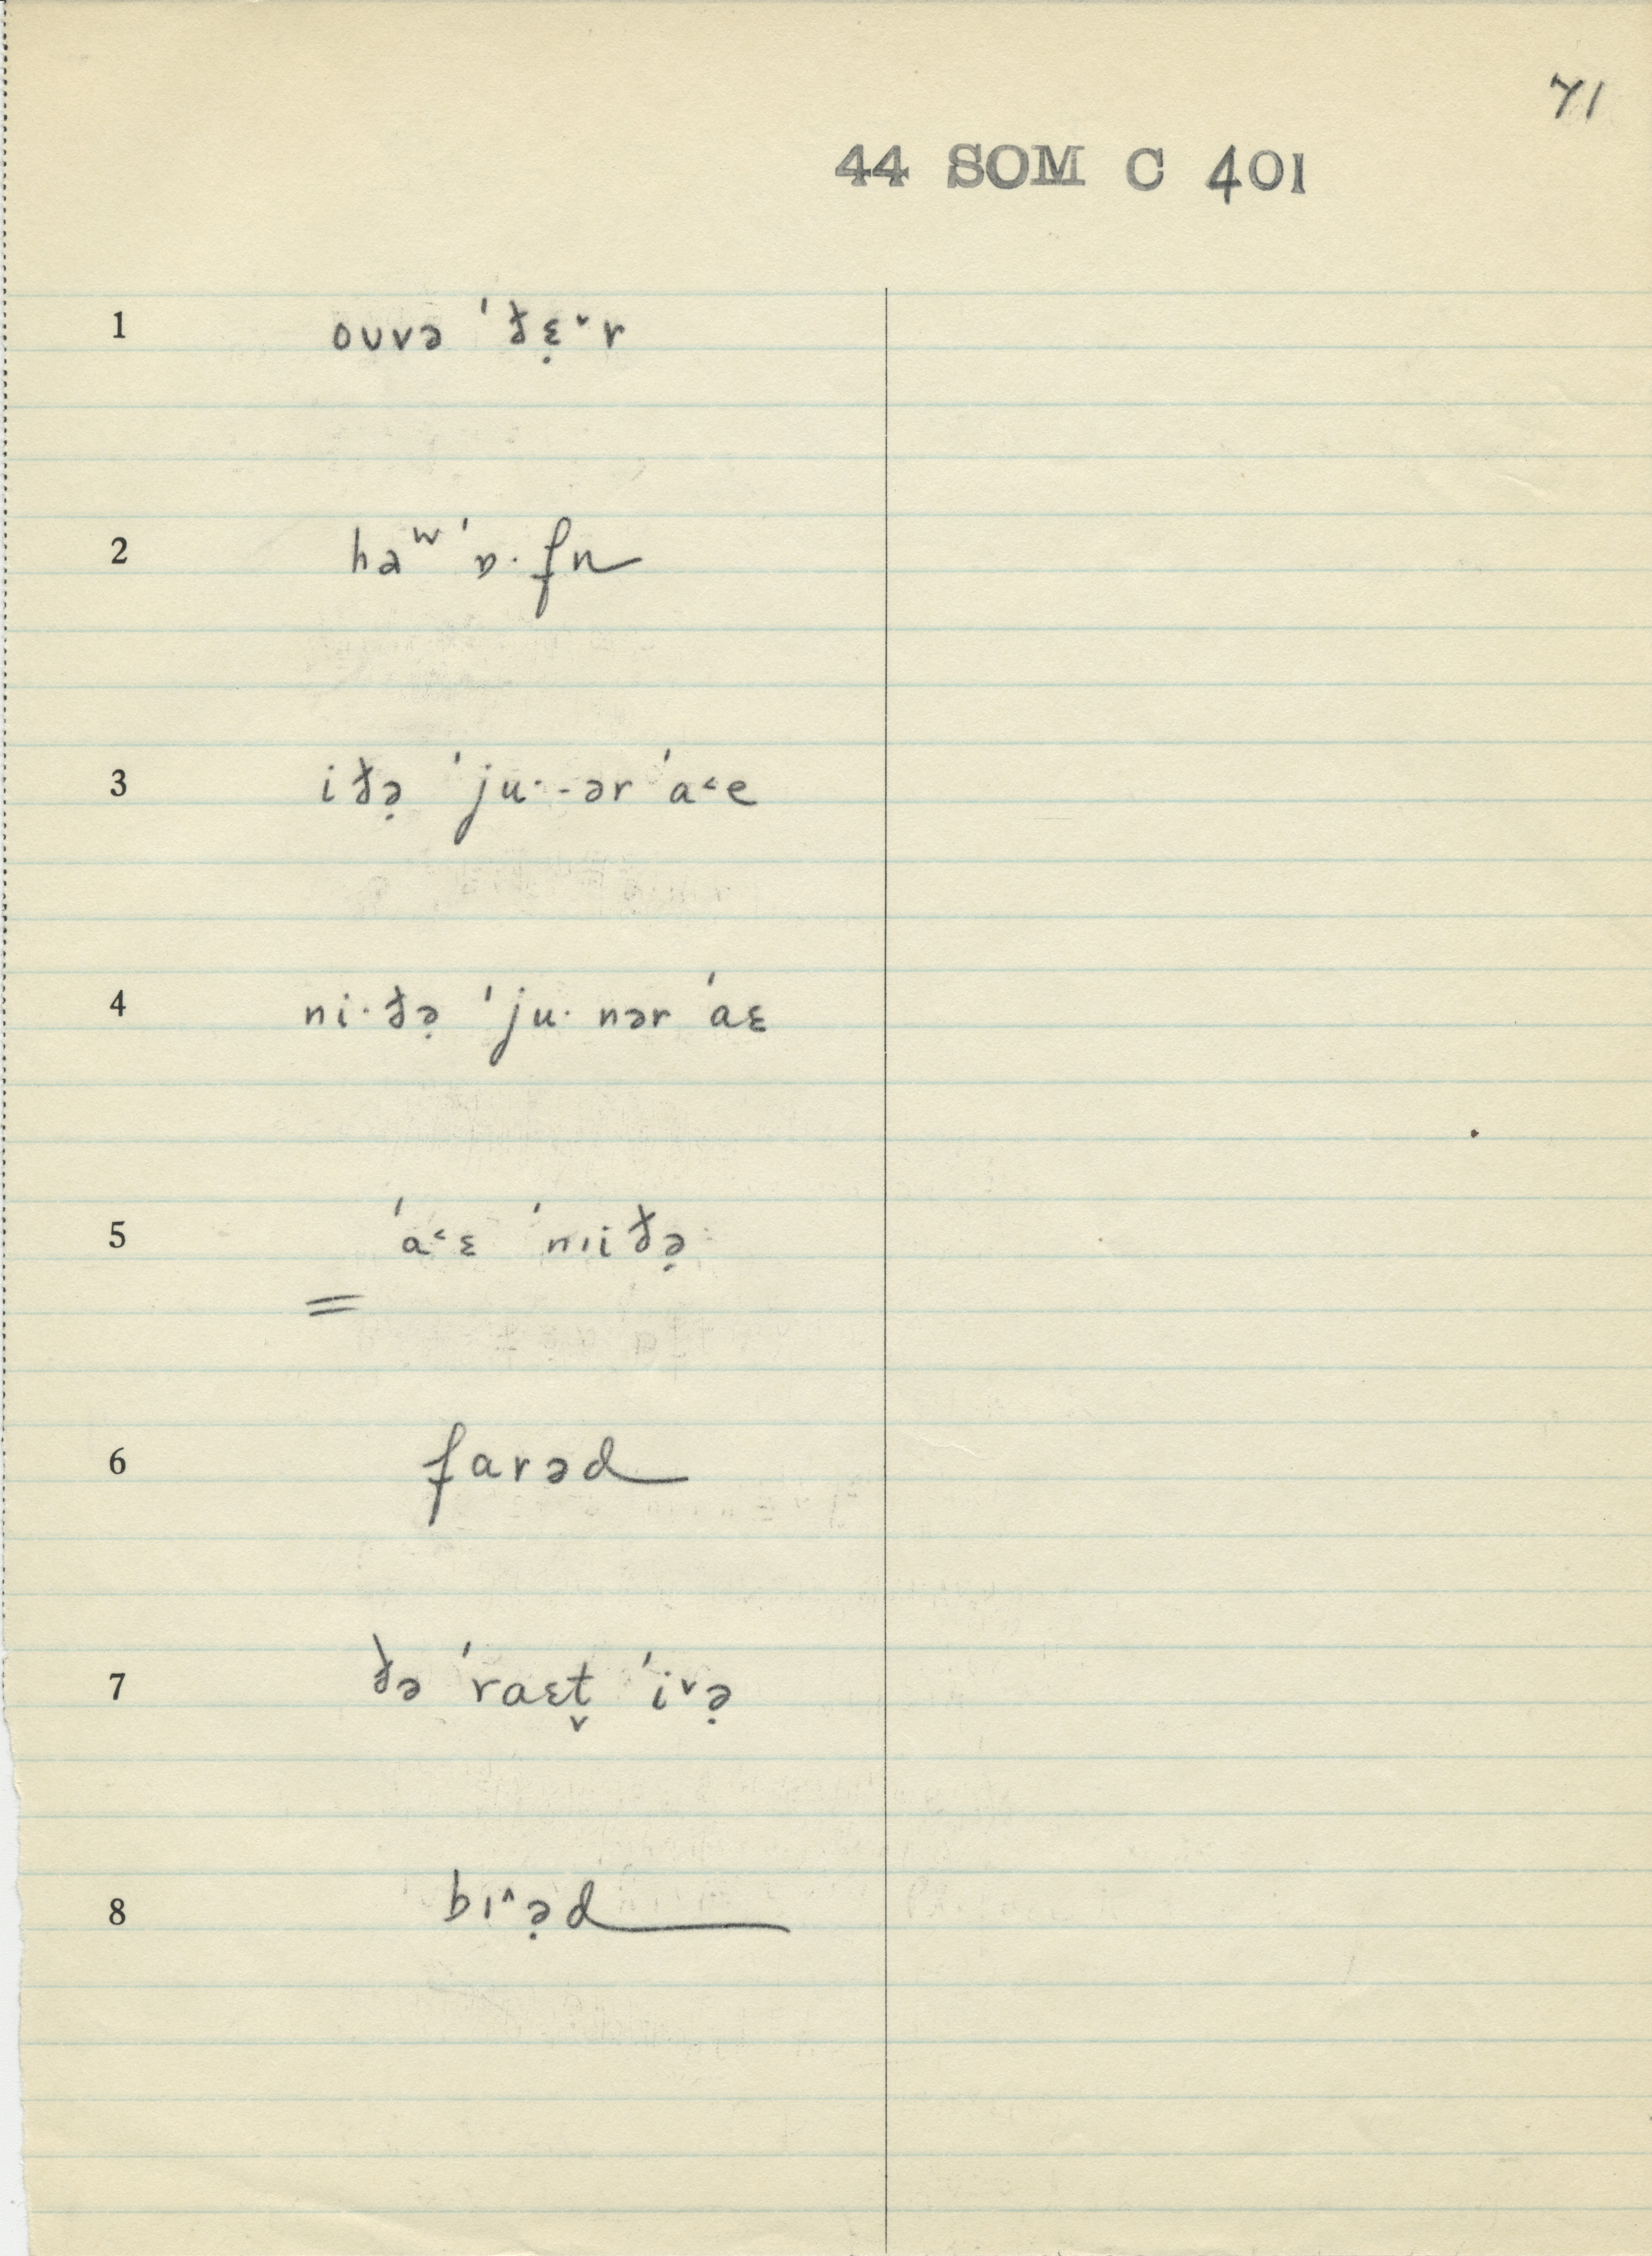 71
44 SOM C 401
1 oʊvə 'ðɛ̣˅r
2 haʷ 'ɒ·fn
3 iðə̣ 'ju·-ər 'a˂e
4 ni·ðə̣ 'ju· nər 'aɛ
5 'a˂ɛ 'nıiðə̣
=
6 farəd
7 ðə 'raɛt̬ 'i˅ə̣
8 bɪ˄ə̣d